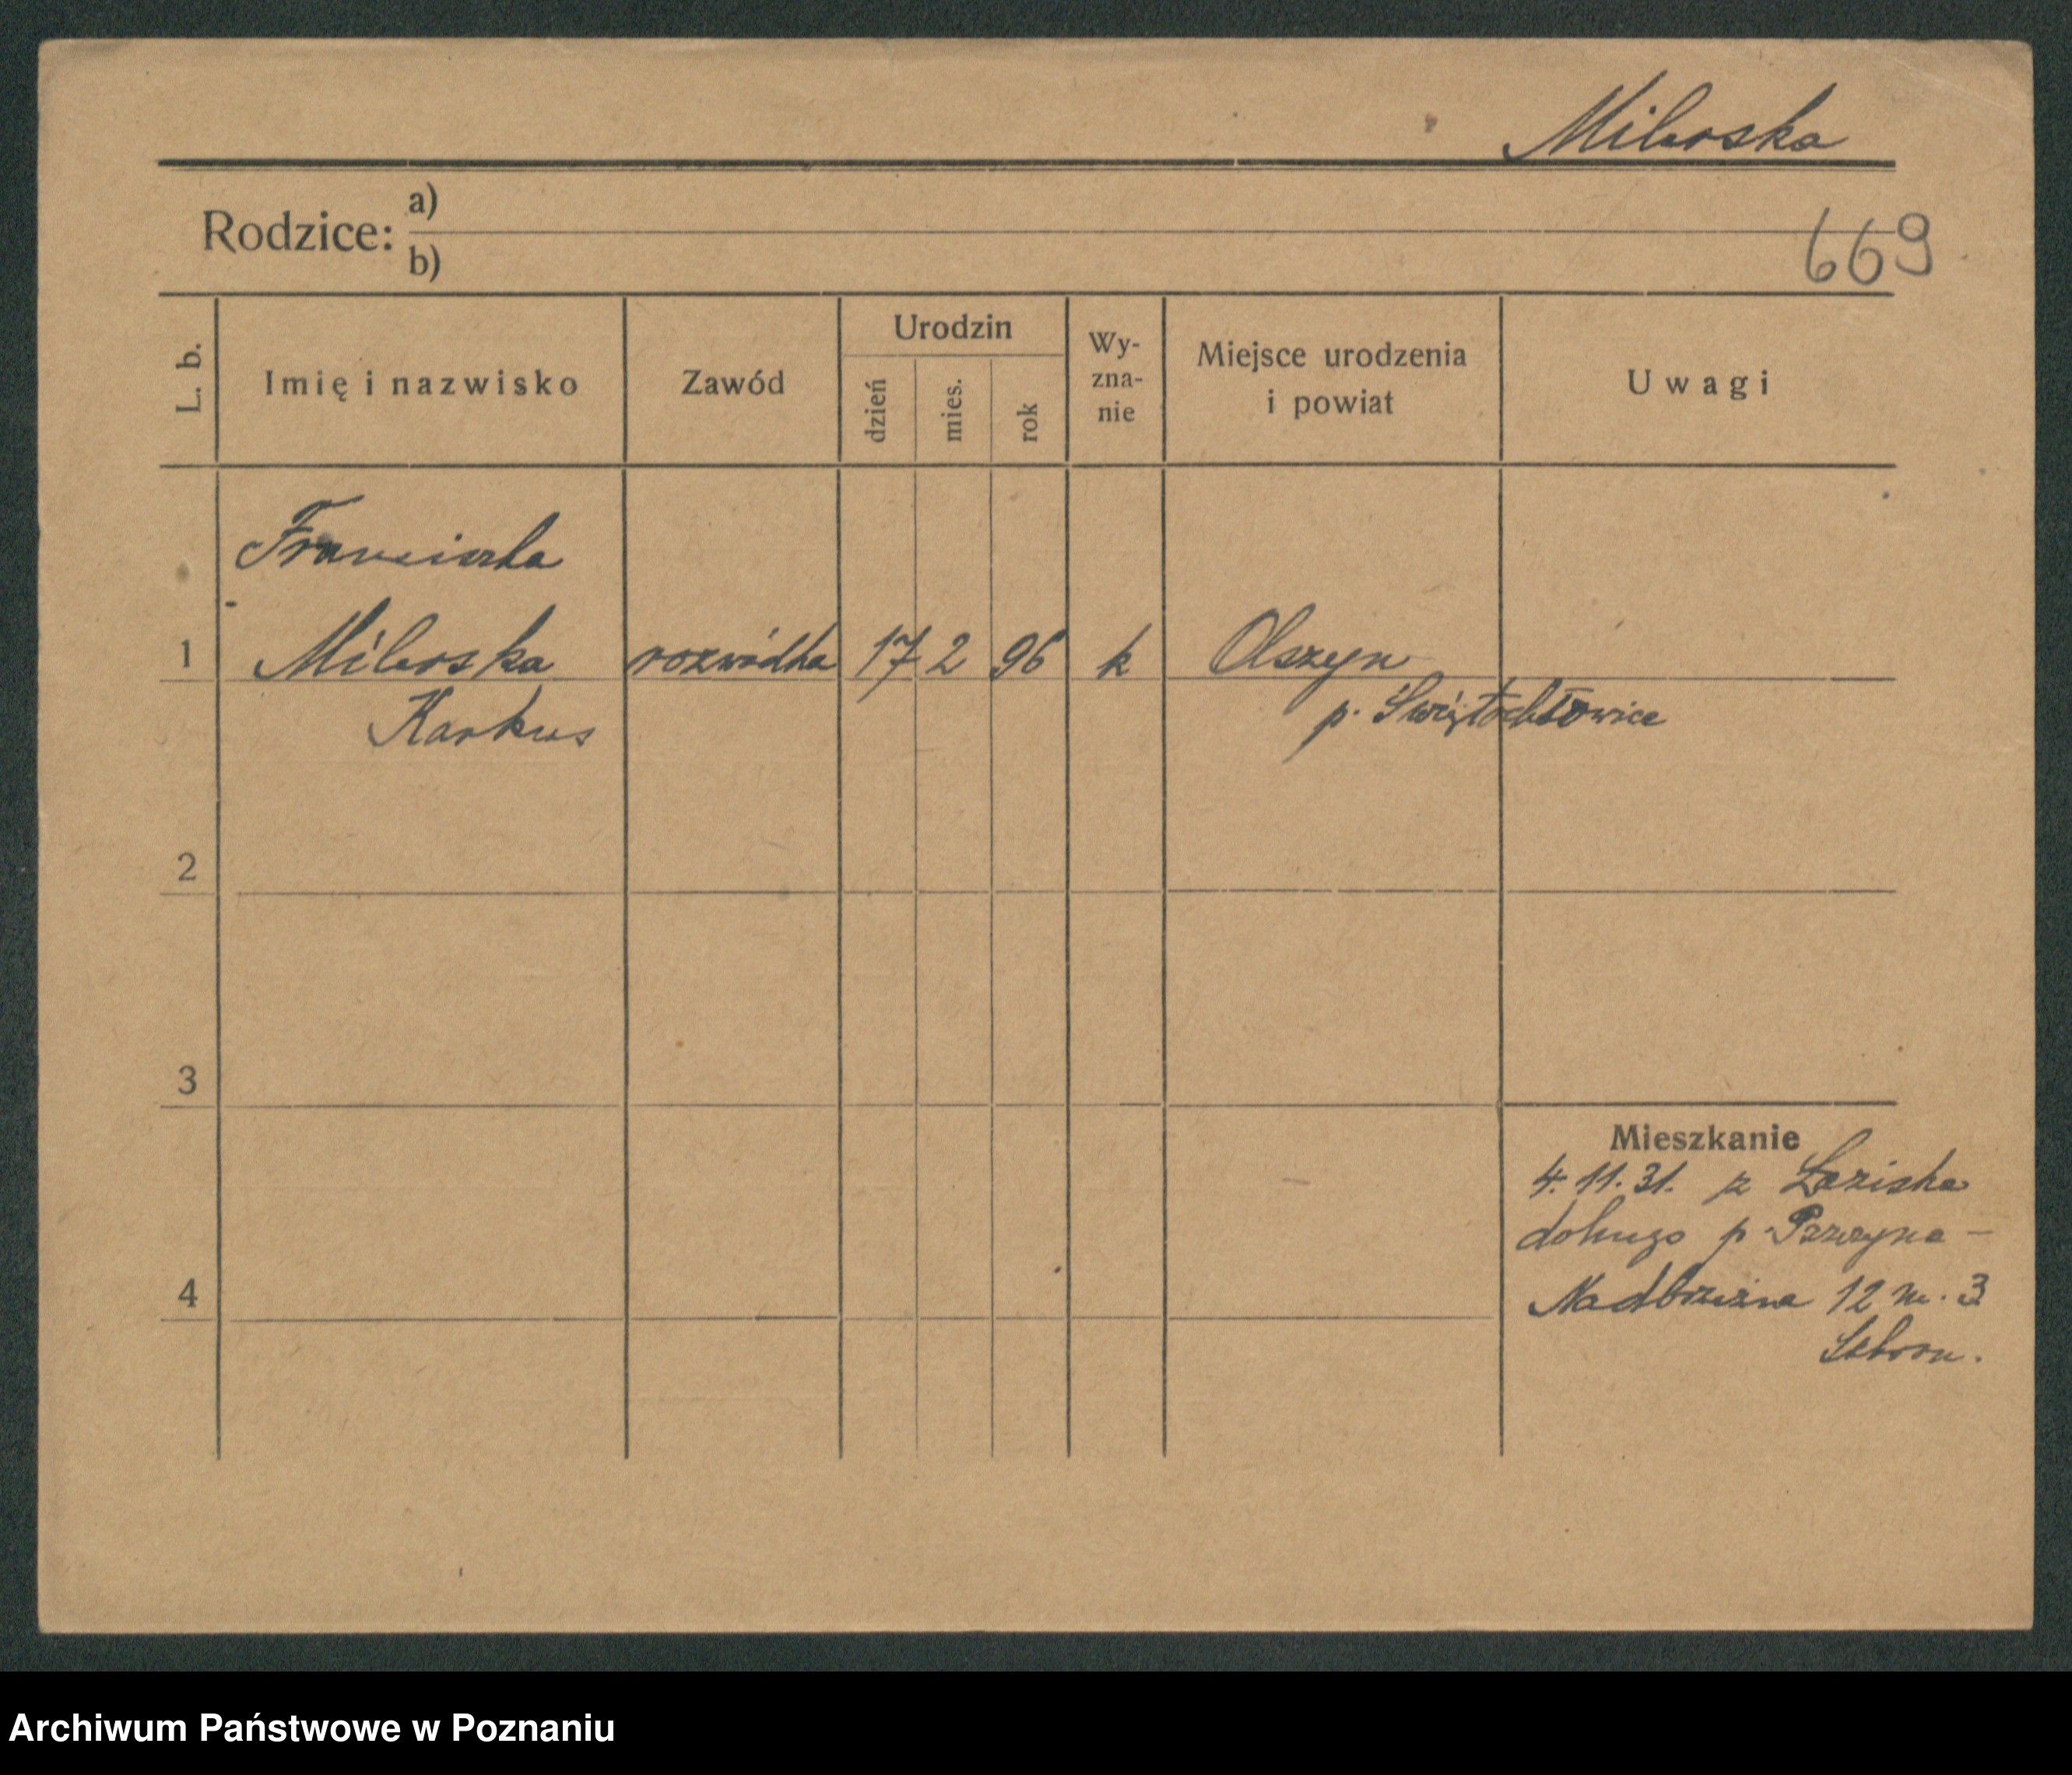 Miloska
Rodzice: a)
b)
669
L. b.
Imię i nazwisko
Zawód
Urodzin
dzień
mies.
rok
Wy-
zna-
nie
Miejsce urodzenia
i powiat
Uwagi
Franciszka
1 Miloska rozwódka 17 2 96 k Olszyn
Karkus p. Świętochłowice
2
3
Mieszkanie
4.11.31. z Łaziska
dolnego p Pszczyna -
4 Nadbrzeżna 12 m. 3
Archiwum Państwowe w Poznaniu